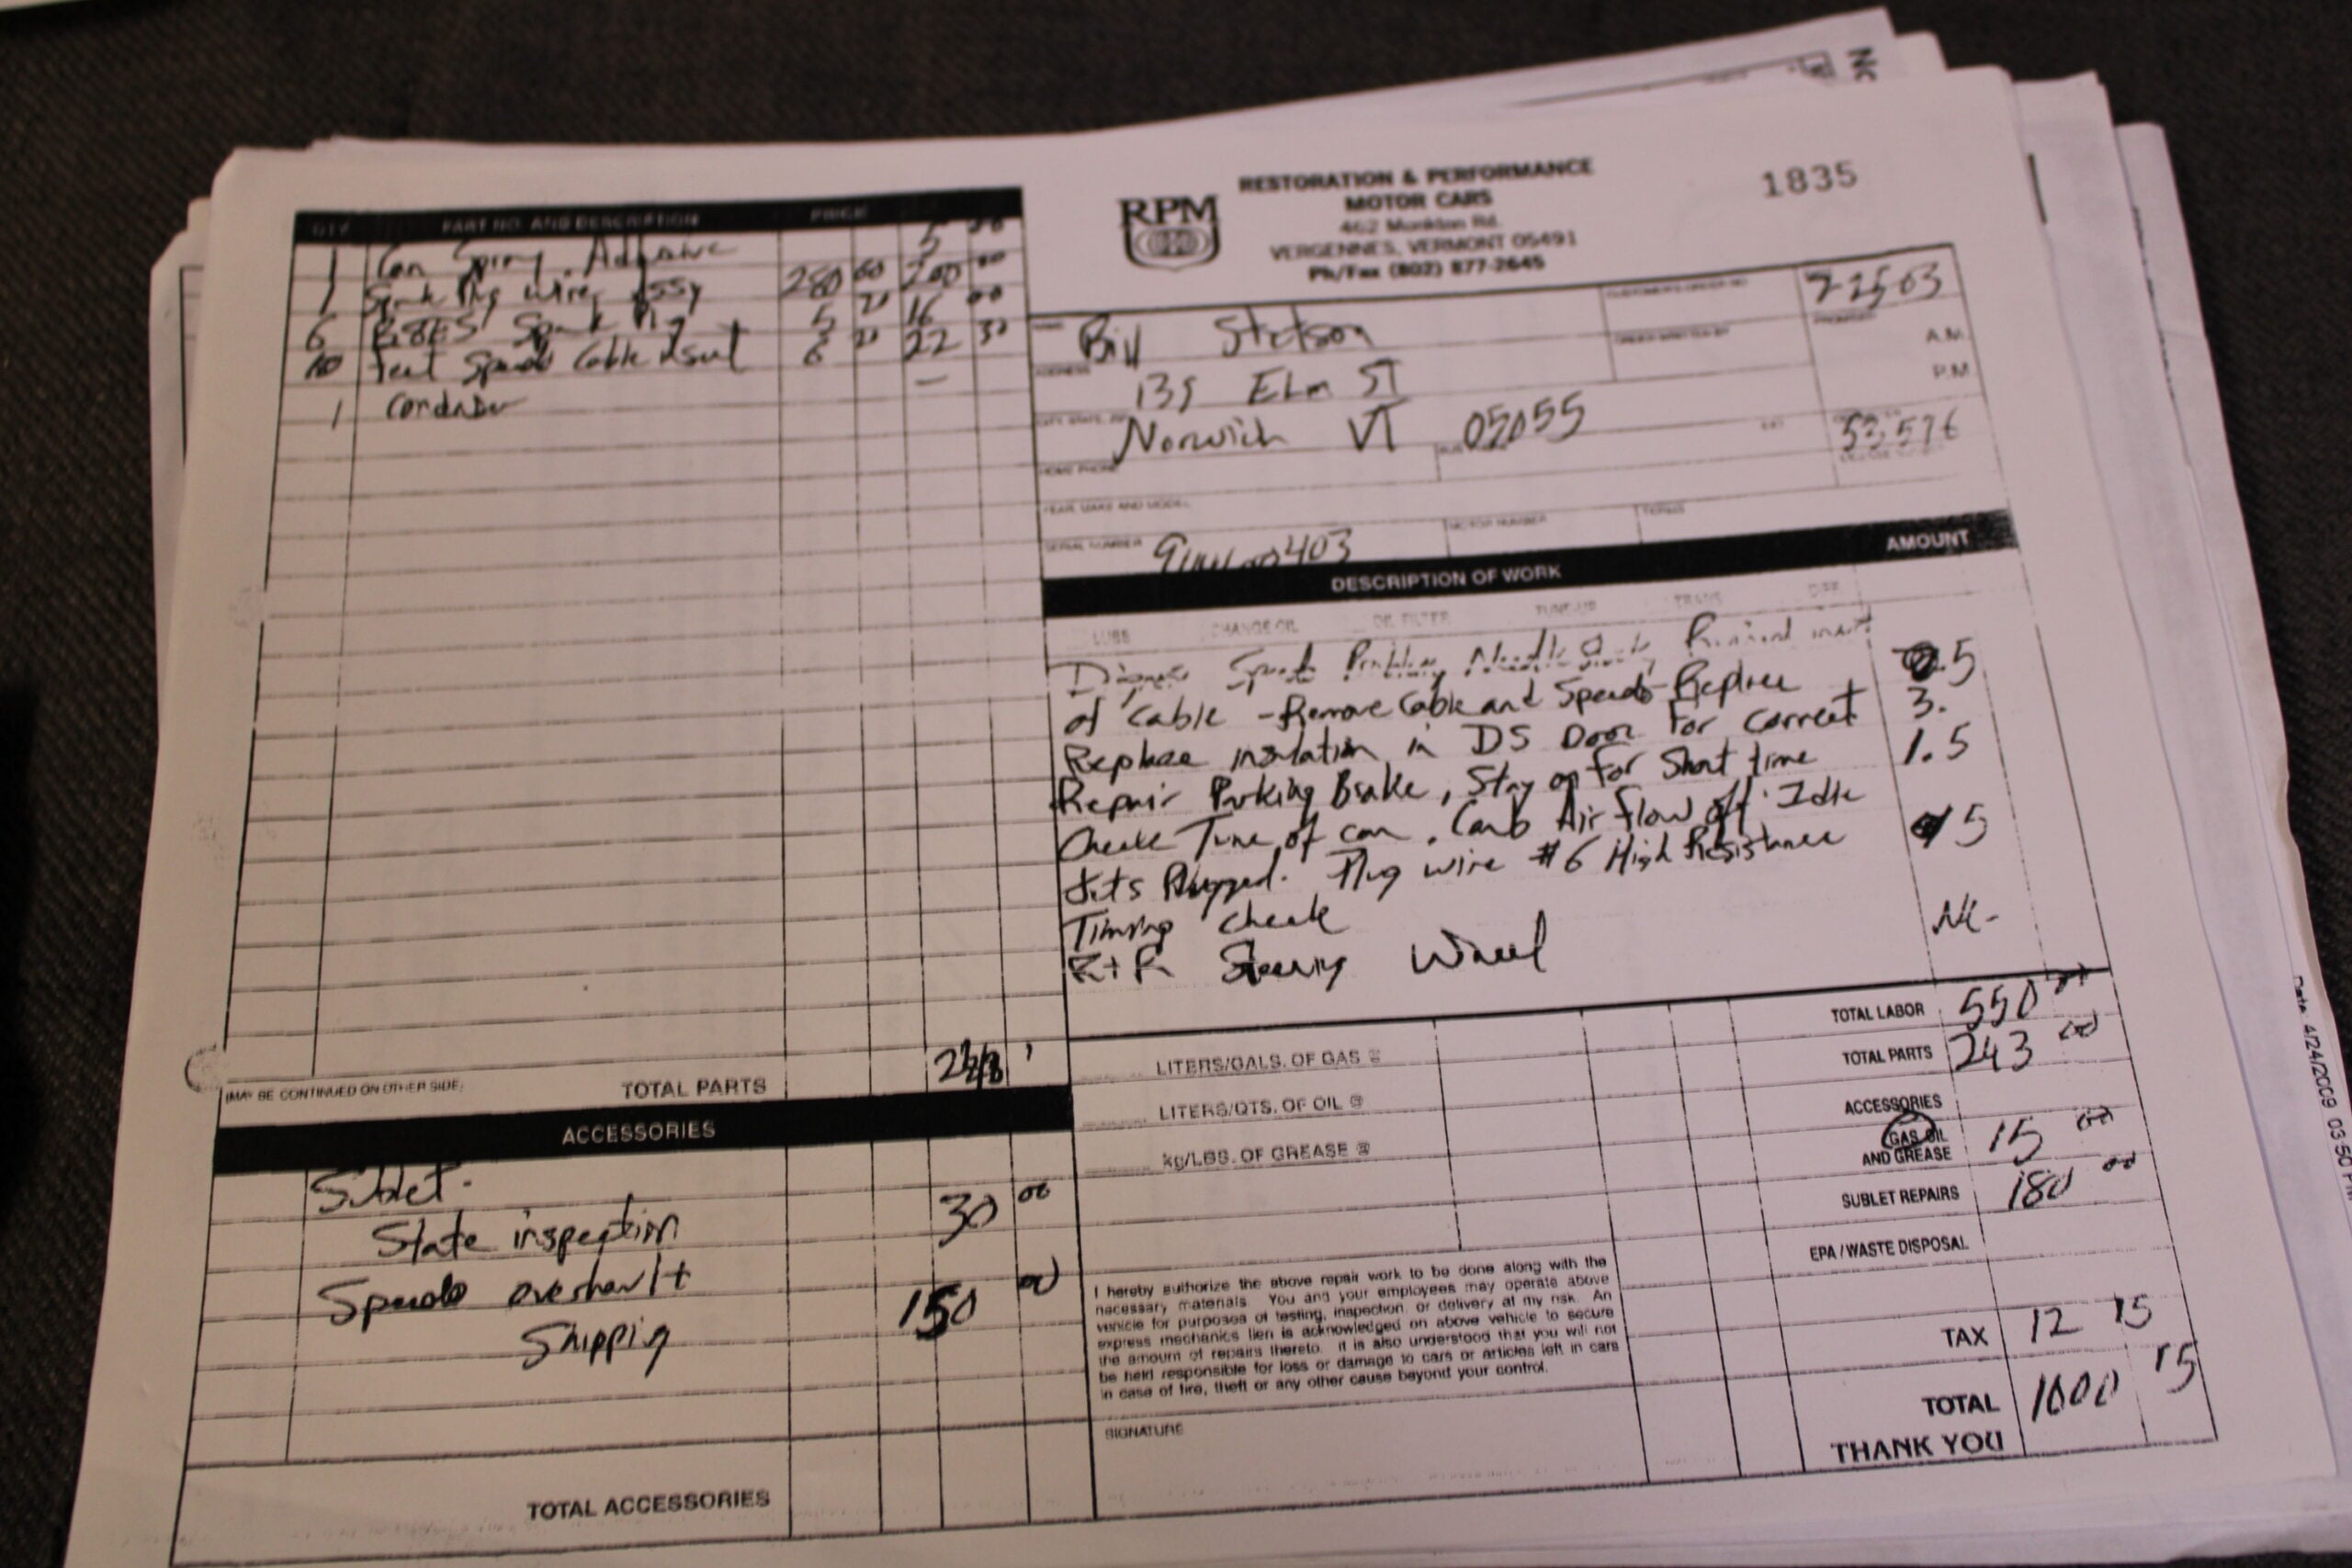 RPM
RESTORATION & PERFORMANCE
MOTOR CARS
462 Monkton Rd.
VERGENNES, VERMONT 05491
Ph/Fax (802) 877-2645
1835
QTY. PART NO. AND DESCRIPTION PRICE
1 Can Spray Adhesive 5 00
1 Spark Plug Wire Assy 200 00
6 Spark Plug 16 00
10 feet Speedo Cable 22
1
TOTAL PARTS
(MAY BE CONTINUED ON OTHER SIDE)
ACCESSORIES
Sublet.
State inspection 30 00
Speedo overhaul +
Shipping 150 00
TOTAL ACCESSORIES
NAME Bill Stetson
ADDRESS 135 Elm ST
CITY, STATE, ZIP Norwich VT 05055
HOME PHONE
CUSTOMER'S ORDER NO.
ORDER WRITTEN BY
PROMISED
A.M.
P.M.
53,576
YEAR, MAKE AND MODEL
SERIAL NUMBER 403
MOTOR NUMBER
TERMS
DESCRIPTION OF WORK AMOUNT
LUBE CHANGE OIL OIL FILTER TUNE-UP TRANS. DIFF.
Diagnose Speedo Problem, Needle
of Cable - Remove Cable and Speedo - Replace .5
Replace insulation in DS Door For Correct 3.
Repair Parking Brake, Stay on For Short time 1.5
Check Tune of car. Carb Air Flow off. Idle
Jets Plugged. Plug wire #6 High Resistance 5
Timing check
R+R Steering Wheel NC-
LITERS/GALS. OF GAS @
LITERS/QTS. OF OIL @
kg/LBS. OF GREASE @
TOTAL LABOR 550 00
TOTAL PARTS 243 00
ACCESSORIES
GAS, OIL
AND GREASE 15 00
SUBLET REPAIRS 180 00
EPA / WASTE DISPOSAL
TAX 12 15
TOTAL 1000 15
THANK YOU
I hereby authorize the above repair work to be done along with the
necessary materials. You and your employees may operate above
vehicle for purposes of testing, inspection, or delivery at my risk. An
express mechanics lien is acknowledged on above vehicle to secure
the amount of repairs thereto. It is also understood that you will not
be held responsible for loss or damage to cars or articles left in cars
in case of fire, theft or any other cause beyond your control.
SIGNATURE
Date: 4/24/2009 03:50 PM